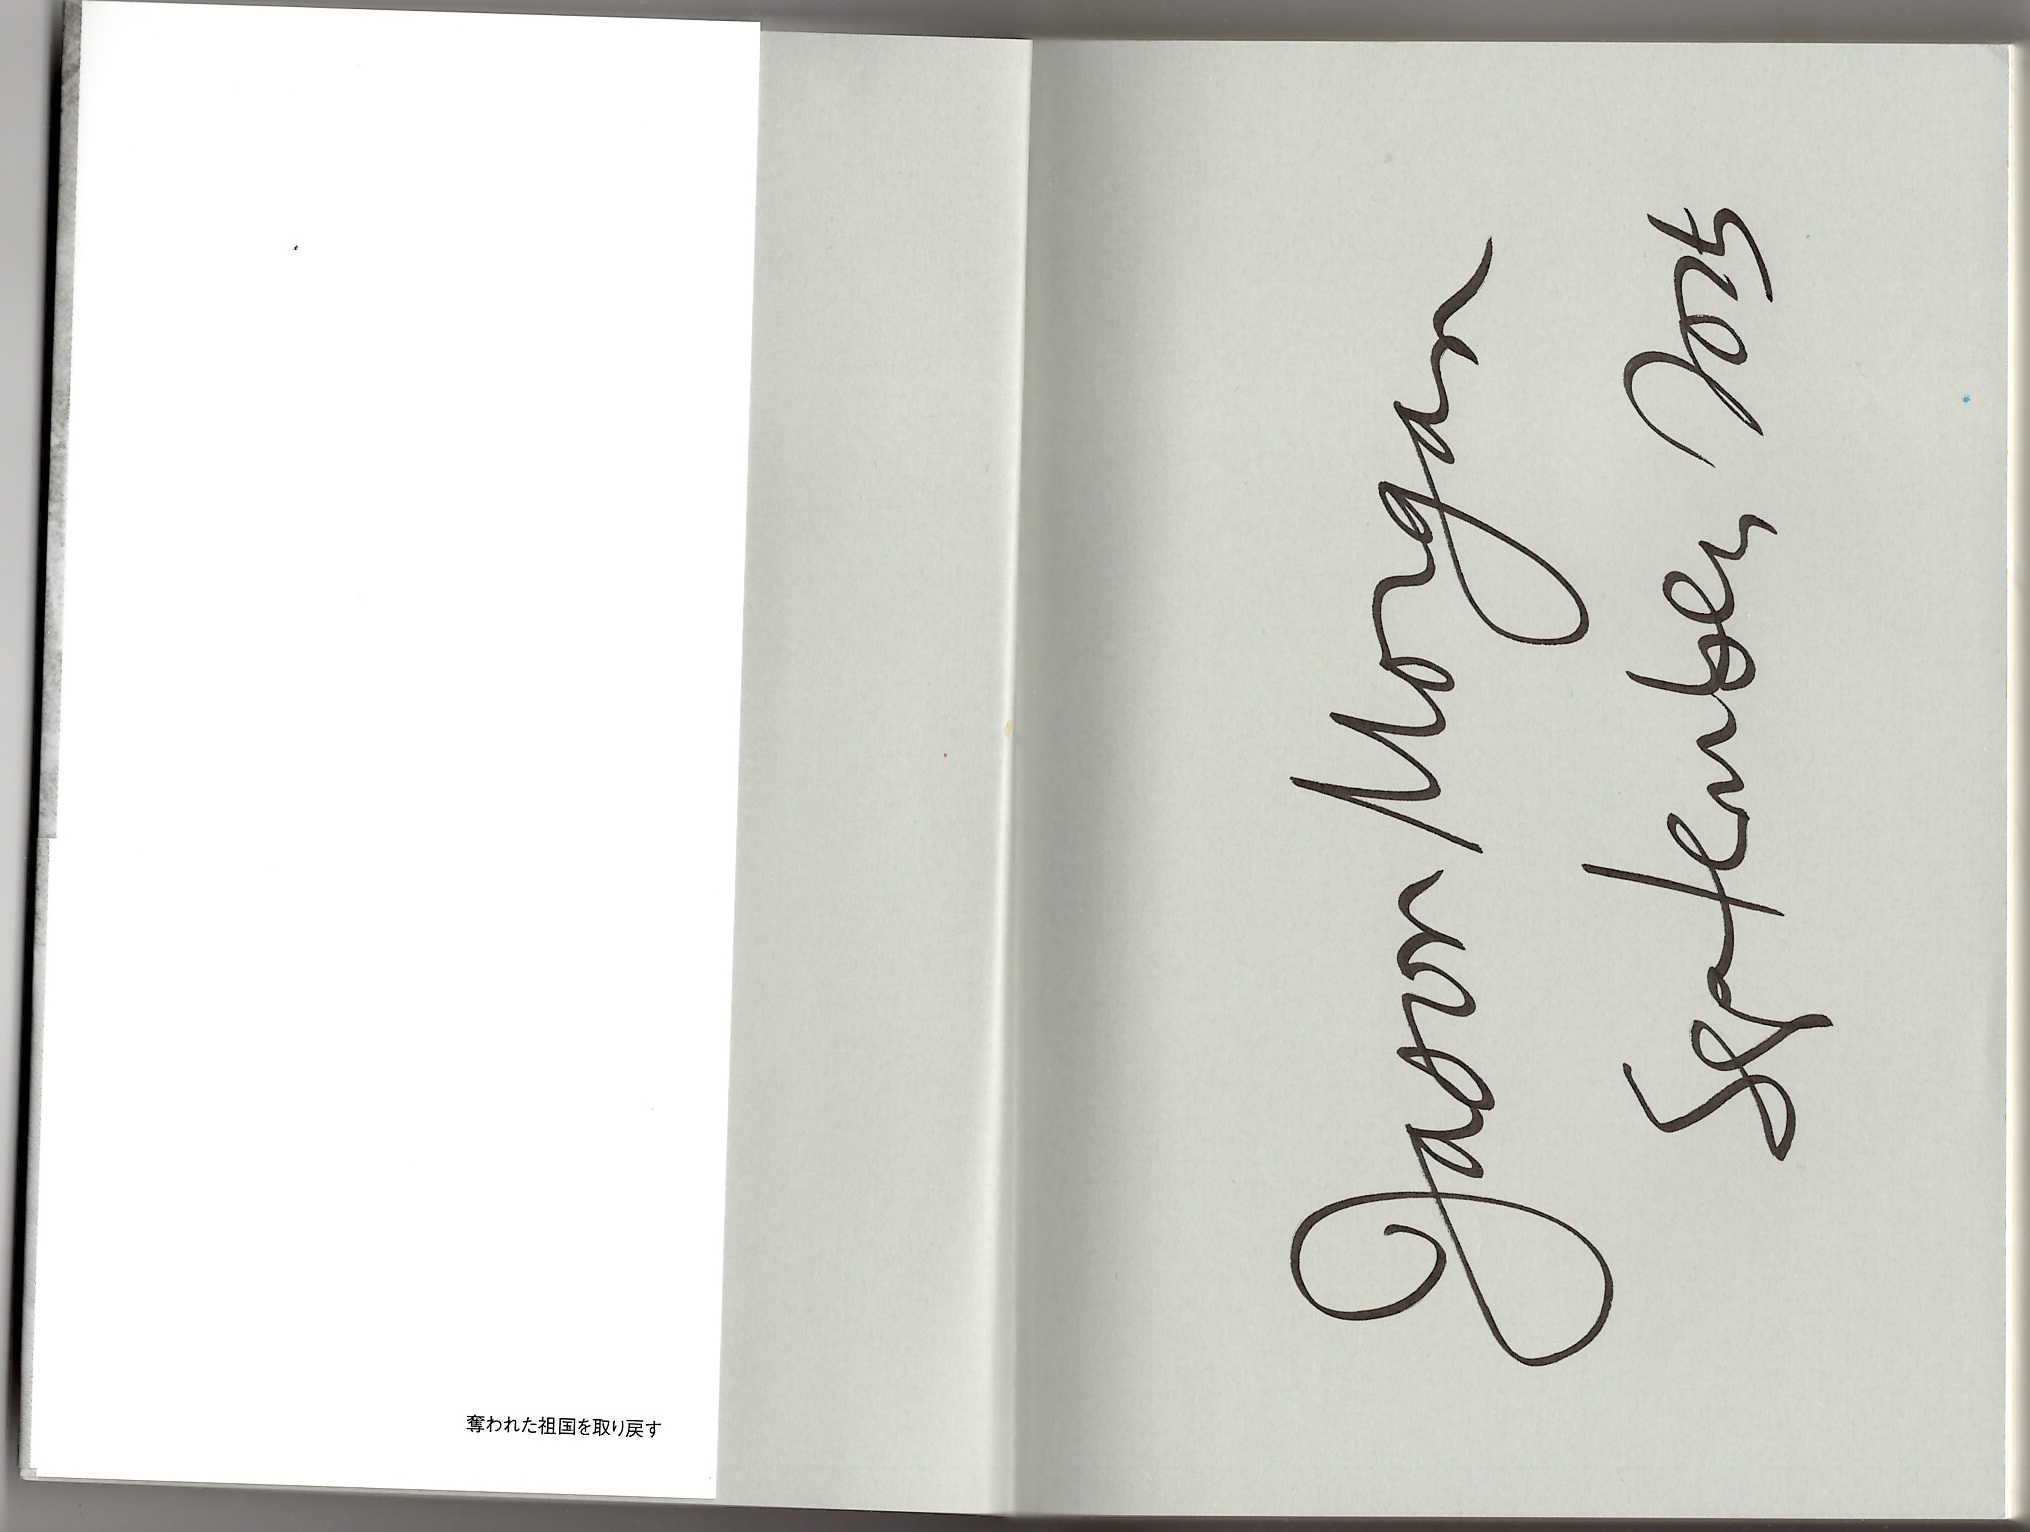 奪われた祖国を取り戻す
Jason Morgan
September 2025